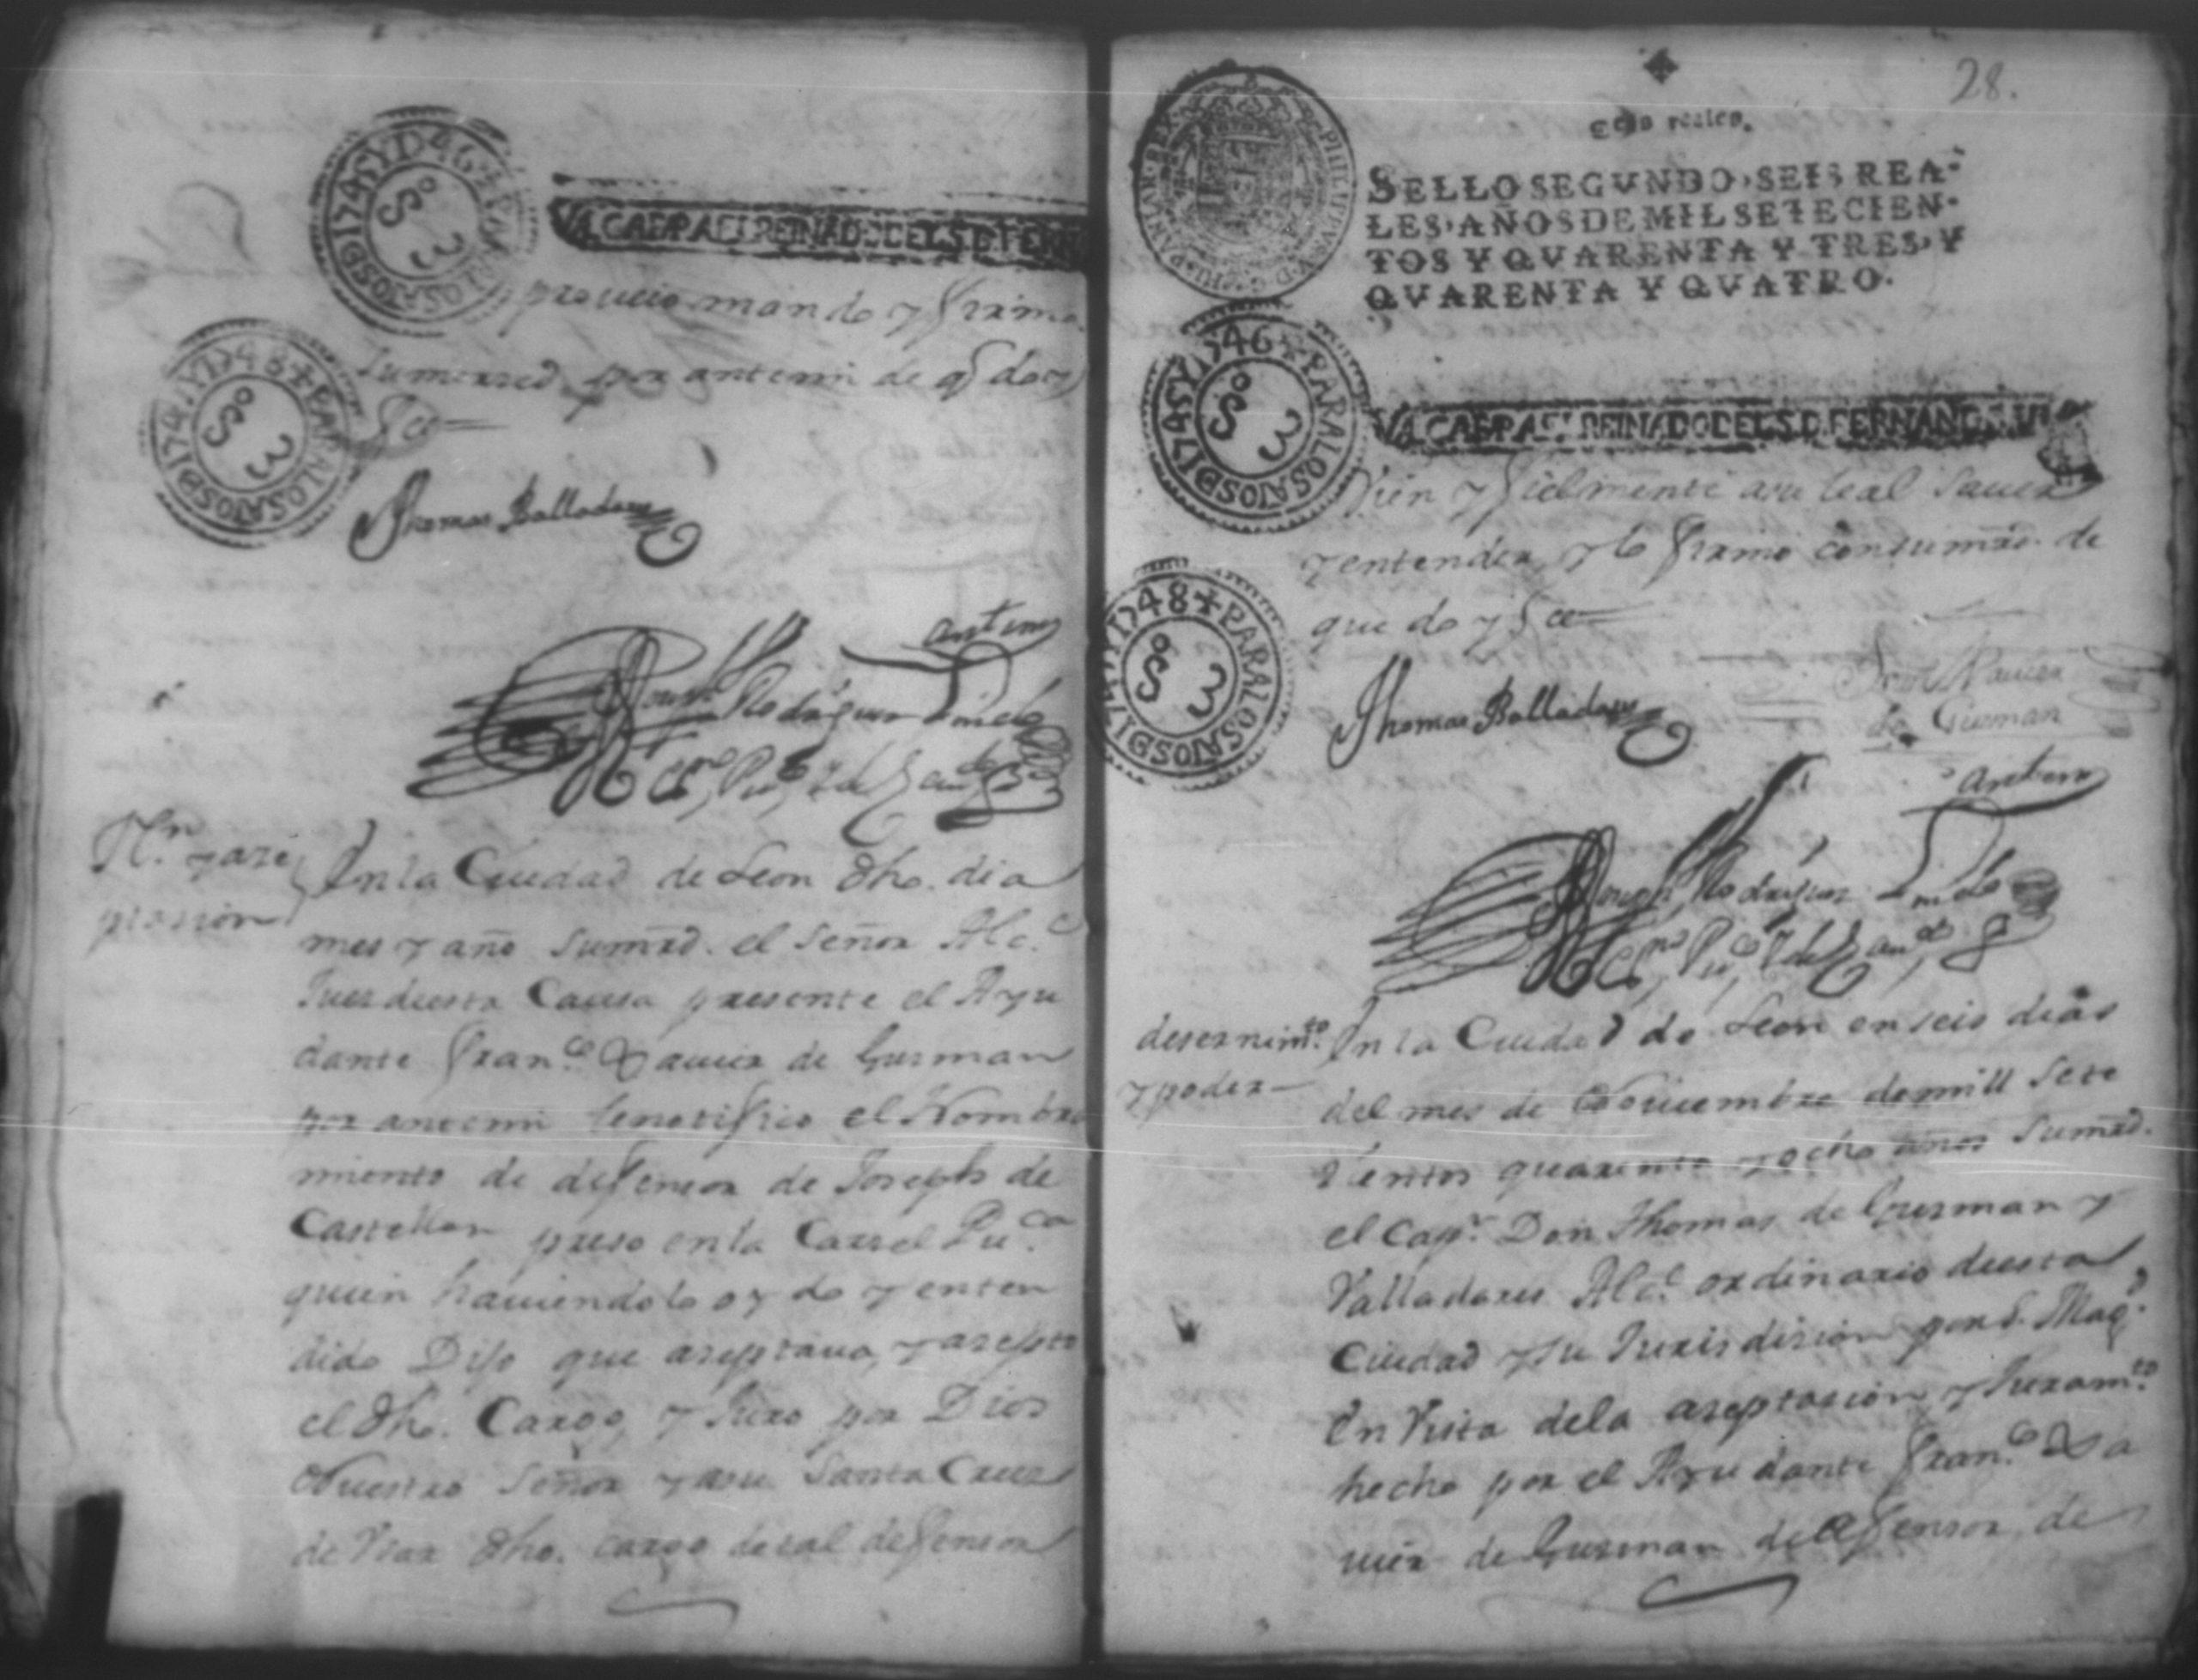 D 1745 Y D 46 + PARA LOS AÑOS
S.º 3
VALGA EPA EL REINADO DEL S. D. FERN
proueio mando y firmo
sumerced por antemi de q.e doy
fee
D 1747 Y D 48 + PARA LOS AÑOS
S.º 3
Thomas Balladares
antemi
Rodriguez Pinelo
Es.no Pu.co
N.n y asep
ptasion
En la Ciudad de Leon dho. dia
mes y año Sumrd. el Señor Alc.e
Jues desta Causa presente el Ayu
dante Fran.co Xauier de Gusman
por antemi lenotifico el Nombra
miento de defensor de Joseph de
Castellon preso enla Carsel Pu.ca
quien hauiendolo oydo y enten
dido Dijo que aseptaua, y asepto
el dho. Cargo, y Juro por Dios
Nuestro Señor y asu Santa Cruz
de Vsar dho. cargo detal defensor
28.
Seis reales.
SELLO SEGVNDO, SEIS REA-
LES, AÑOS DE MIL SETECIEN-
TOS Y QVARENTA Y TRES, Y
QVARENTA Y QVATRO.
D 1745 Y D 46 + PARA LOS AÑOS
S.º 3
VALGA EPA EL REINADO DEL S. D. FERNANDO VI
Vien y fielmente asu leal Sauer
y entender, y lo firmo consumrd. de
que doy fee
D 1747 Y D 48 + PARA LOS AÑOS
S.º 3
Fran.co Xauier
de Gusman
Thomas Balladares
antemi
Rodriguez Pinelo
Es.no Pu.co
desernim.to
y poder
En la Ciudad de Leon en seis dias
del mes de Nouiembre demill Sete
sientos quarenta y ocho años Sumrd.
el Cap.n Don Thomas de Gusman y
Valladares Alc.e ordinario desta
Ciudad y su Jurisdision por S. Mag.d
En Vista dela aseptasion y Juram.to
hecho por el Ayudante Fran.co Xa
uier de Gusman de defensor de